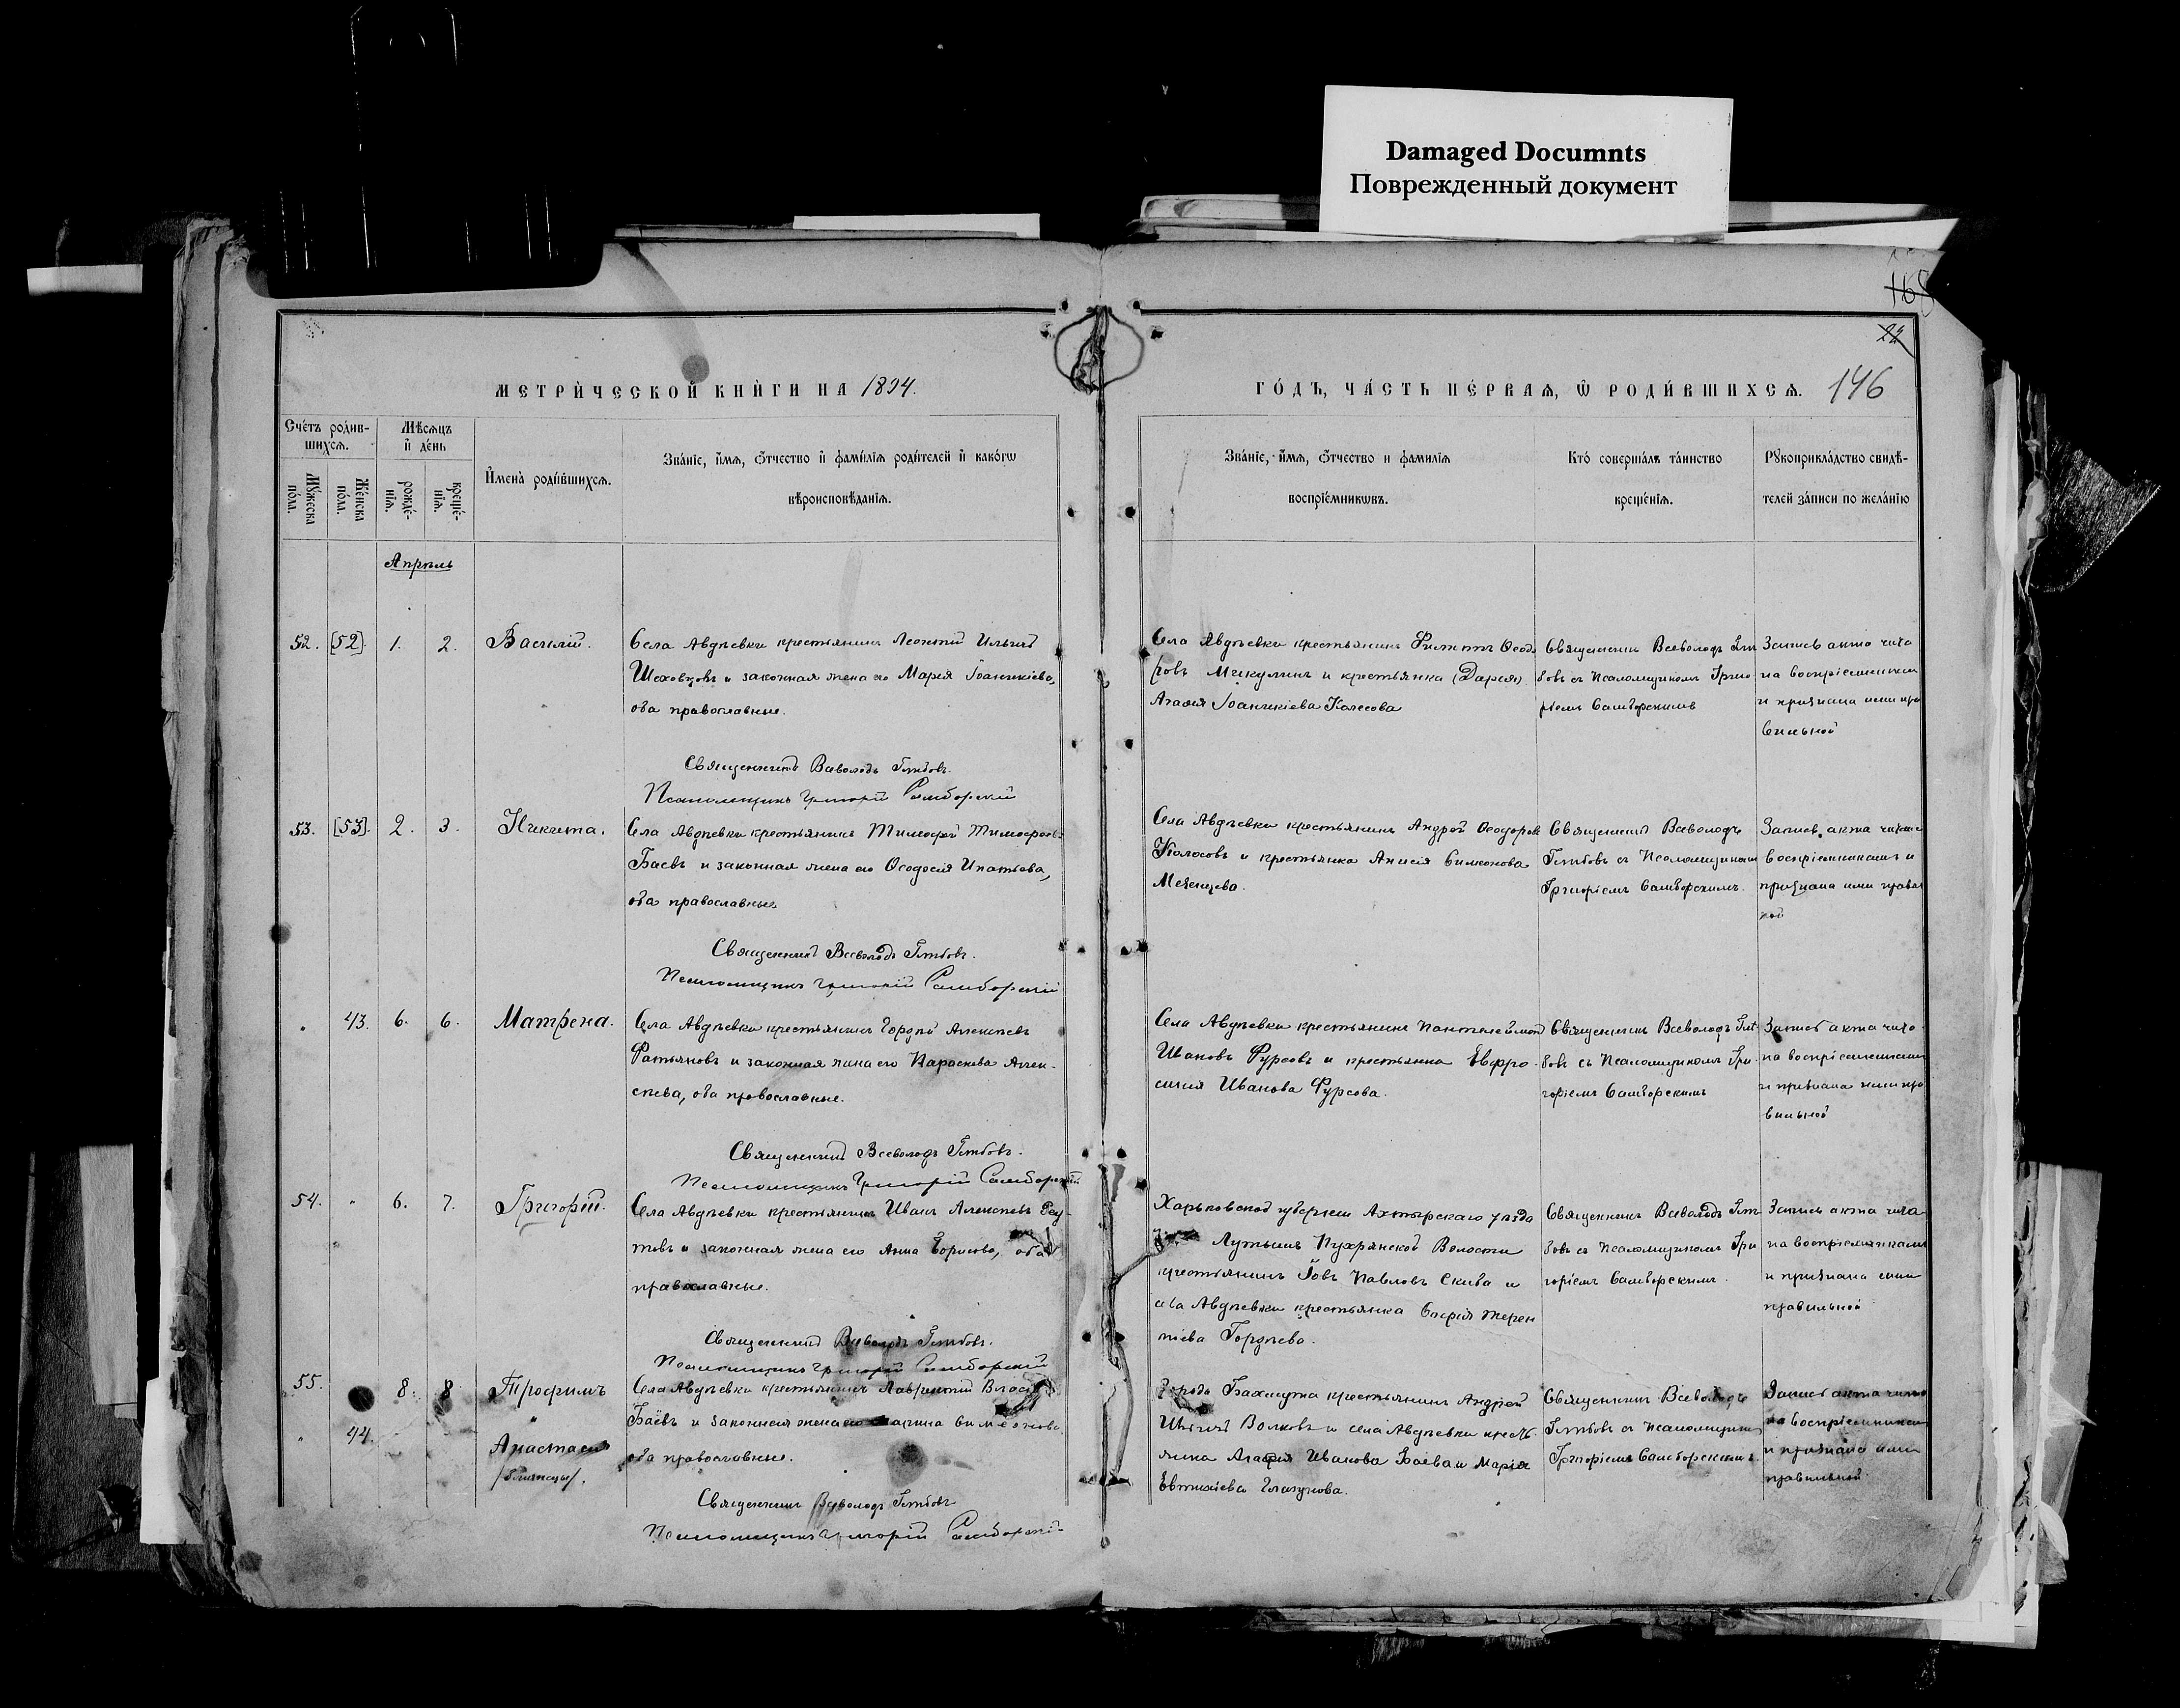 Damaged Documnts
Поврежденный документ
168
22
МЕТРИЧЕСКОЙ КНИГИ НА 1894.
ГОДЪ, ЧАСТЬ ПЕРВАЯ, Ѡ РОДИВШИХСЯ. 146
Счетъ родив-
шихся.
Мужеска
пола.
Женска
пола.
Мѣсяцъ
и день
рожде-
нїя.
креще-
нїя.
Имена родившихся.
Званїе, имя, ѿчество и фамилїя родителей и какогѡ
вѣроисповѣданїя.
Званїе, имя, ѿчество и фамилїя
воспрїемникѡвъ.
Кто совершалъ таинство
крещенїя.
Рꙋкоприкладство свидѣ-
телей записи по желанїю
Апрѣль
52. [52]. 1. 2. Василій.
Села Авдѣевки крестьянинъ Леонтій Ильичъ
Шеховцовъ и законная жена его Марія Іоаникіева,
оба православные.
Священникъ Всеволодъ Глѣбовъ.
Псаломщикъ Григорій Самборскій
Села Авдѣевки крестьянинъ Филиппъ Ѳеодо
ровъ Микулинъ и крестьянка (Дарія)
Агафія Іоаникіева Колесова
Священникъ Всеволодъ Глѣ
бовъ съ Псаломщикомъ Григо
ріемъ Самборскимъ
Запись акта чита
на воспріемникам
и признана ими пра
вильной
53. [53]. 2. 3. Никита.
Села Авдѣевки крестьянинъ Тимофей Тимофеевъ
Баевъ и законная жена его Ѳеодосія Ипатьева,
оба православные
Священникъ Всеволодъ Глѣбовъ.
Псаломщикъ Григорій Самборскій
Села Авдѣевки крестьянинъ Андрей Ѳеодоровъ
Колосовъ и крестьянка Анисія Симеонова
Мезенцева.
Священникъ Всеволодъ
Глѣбовъ съ Псаломщикомъ
Григоріемъ Самборскимъ.
Запись акта читана
воспріемникамъ и
признана ими правиль
ной
" 43. 6. 6. Матрена.
Села Авдѣевки крестьянинъ Гордѣй Алексѣевъ
Фатьяновъ и законная жена его Параскева Алек-
сѣева, оба православные.
Священникъ Всеволодъ Глѣбовъ.
Псаломщикъ Григорій Самборскій
Села Авдѣевки крестьянинъ Пантелеймонъ
Ивановъ Фурсовъ и крестьянка Евфро-
синія Иванова Фурсова.
Священникъ Всеволодъ Глѣ-
бовъ съ Псаломщикомъ Гри-
горіемъ Самборскимъ
Запись акта чита-
на воспріемникам
и признана ими пра
вильной
54. " 6. 7. Григорій.
Села Авдѣевки крестьянинъ Иванъ Алексѣевъ Реу-
товъ и законная жена его Анна Борисова, оба
православные.
Священникъ Всеволодъ Глѣбовъ.
Псаломщикъ Григорій Самборскій
Харьковской губерніи Ахтырскаго уѣзда
Лутищъ Пухрянской Волости
крестьянинъ Іовъ Павловъ Скиба и
села Авдѣевки крестьянка Терен
тіева Гордѣева.
Священникъ Всеволодъ Глѣ
бовъ съ Псаломщикомъ Гри
горіемъ Самборскимъ.
Запись акта чита
на воспріемникамъ
и признана ими
правильной
55. 8. 8. Трофимъ
Села Авдѣевки крестьянинъ Лаврентій
Баевъ и законная жена его Симеонова
оба православные.
" 44. "
Анастасія
/близнецы/.
Священникъ Всеволодъ Глѣбовъ
Псаломщикъ Григорій Самборскій
Города Бахмута крестьянинъ Андрей
Волковъ и села Авдѣевки кресть
янка Агафія Иванова Баева и Марія
Евтихіева Глазунова.
Священникъ Всеволодъ
Глѣбовъ съ Псаломщикомъ
Григоріемъ Самборскимъ.
Запись акта читана
на воспріемникам
и признана ими
правильной.